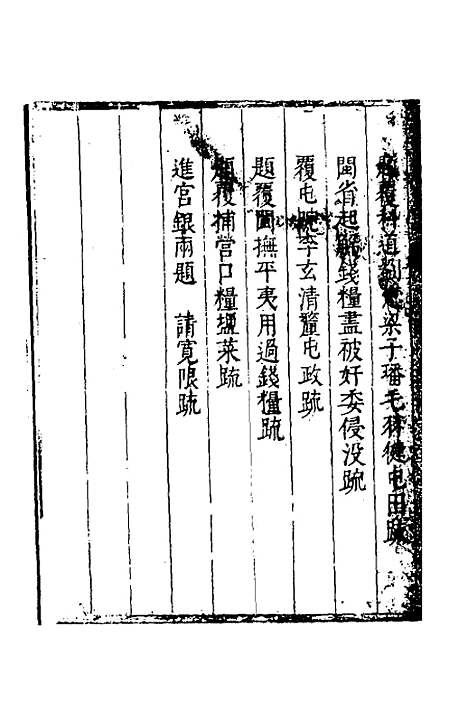 題覆科道劉梁子璠毛羽健屯田疏
閩省起解錢糧盡被奸委侵没疏
覆屯院李玄清釐屯政疏
題覆閩撫平夷用過錢糧疏
題覆捕營口糧塩菜疏
進宮銀兩題 請寛限疏